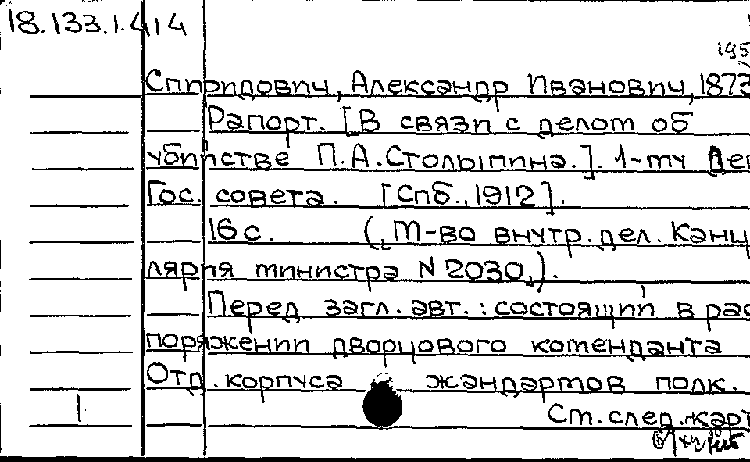 18.133.1.414
195
Спиридович, Александр Иванович, 1873
Рапорт. [В связи с делом об
убийстве П.А.Столыпина.]. 1-му Деп
Гос. совета. [Спб., 1912].
16 с. (М-во внутр. дел. Канц
лярия министра N 2030.).
Перед загл. авт.: состоящий в рас
поряжении дворцового коменданта
Отд. корпуса жандармов полк.
См. след. карт